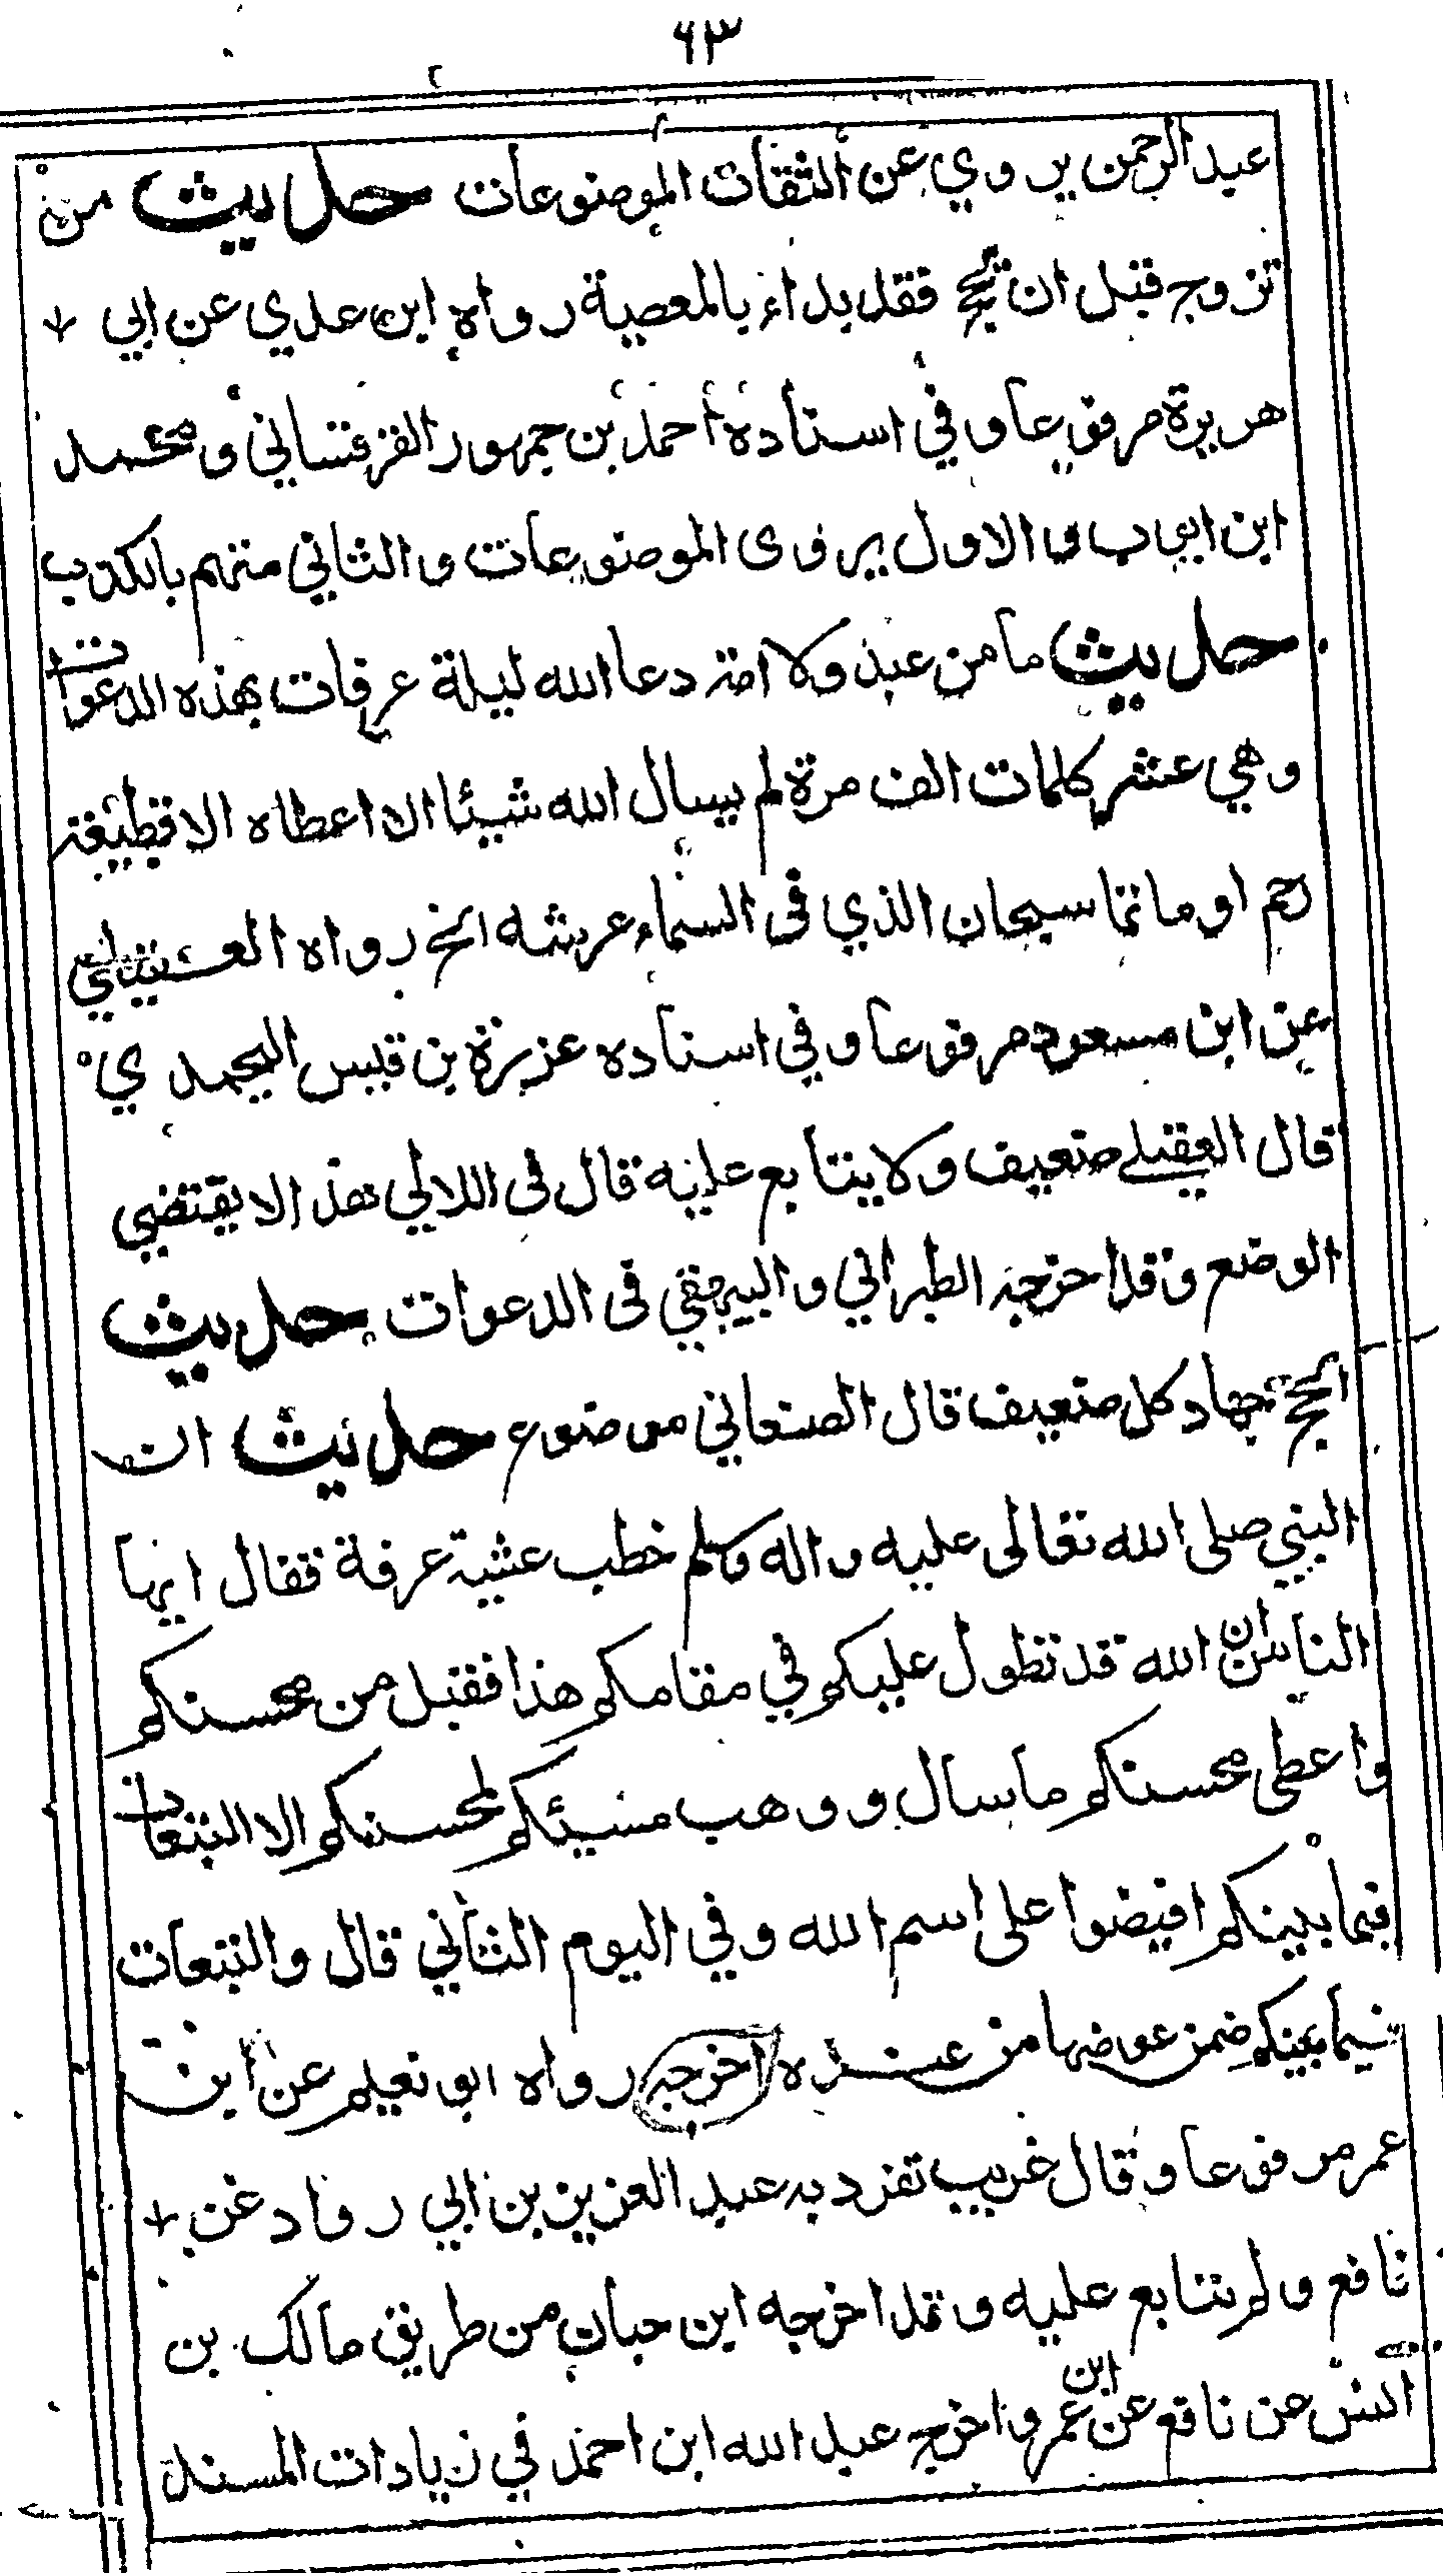 ٦٣
عبد الرحمن يروي عن الثقات الموضوعات حديث من
تزوج قبل ان يحج فقد بداء بالمعصية رواه ابن عدي عن ابي
هريرة مرفوعا وفي اسناده احمد بن جمهور القرقساني ومحمد
ابن ايوب والاول يروى الموضوعات والثاني متهم بالكذب
حديث ما من عبد ولا امة دعا الله ليلة عرفات بهذه الدعوات
وهي عشر كلمات الف مرة لم يسال الله شيئا الا اعطاه الا قطيعة
رحم او ماثما سبحان الذي في السماء عرشه الخ رواه
عن ابن مسعود مرفوعا وفي اسناده عزرة بن قيس اليحمدي
قال العقيلي ضعيف ولا يتابع عليه قال في اللالي هذا لا يقتضي
الوضع وقد اخرجه الطبراني والبيهقي في الدعوات حديث
الحج جهاد كل ضعيف قال الصنعاني موضوع حديث ان
النبي صلى الله تعالى عليه واله وسلم خطب عشية عرفة فقال ايها
الناس ان الله قد تطول عليكم في مقامكم هذا فقبل من محسنكم
واعطى محسنكم ما سال ووهب مسيئكم لمحسنكم الا التبعات
فيما بينكم افيضوا على اسم الله وفي اليوم الثاني قال والتبعات
فيما بينكم ضمن عوضها من عنده اخرجه رواه ابو نعيم عن ابن
عمر مرفوعا وقال غريب تفرد به عبد العزيز بن ابي رواد عن
نافع ولم يتابع عليه وقد اخرجه ابن حبان من طريق مالك بن
انس عن نافع عن ابن عمر واخرجه عبد الله ابن احمد في زيادات المسند